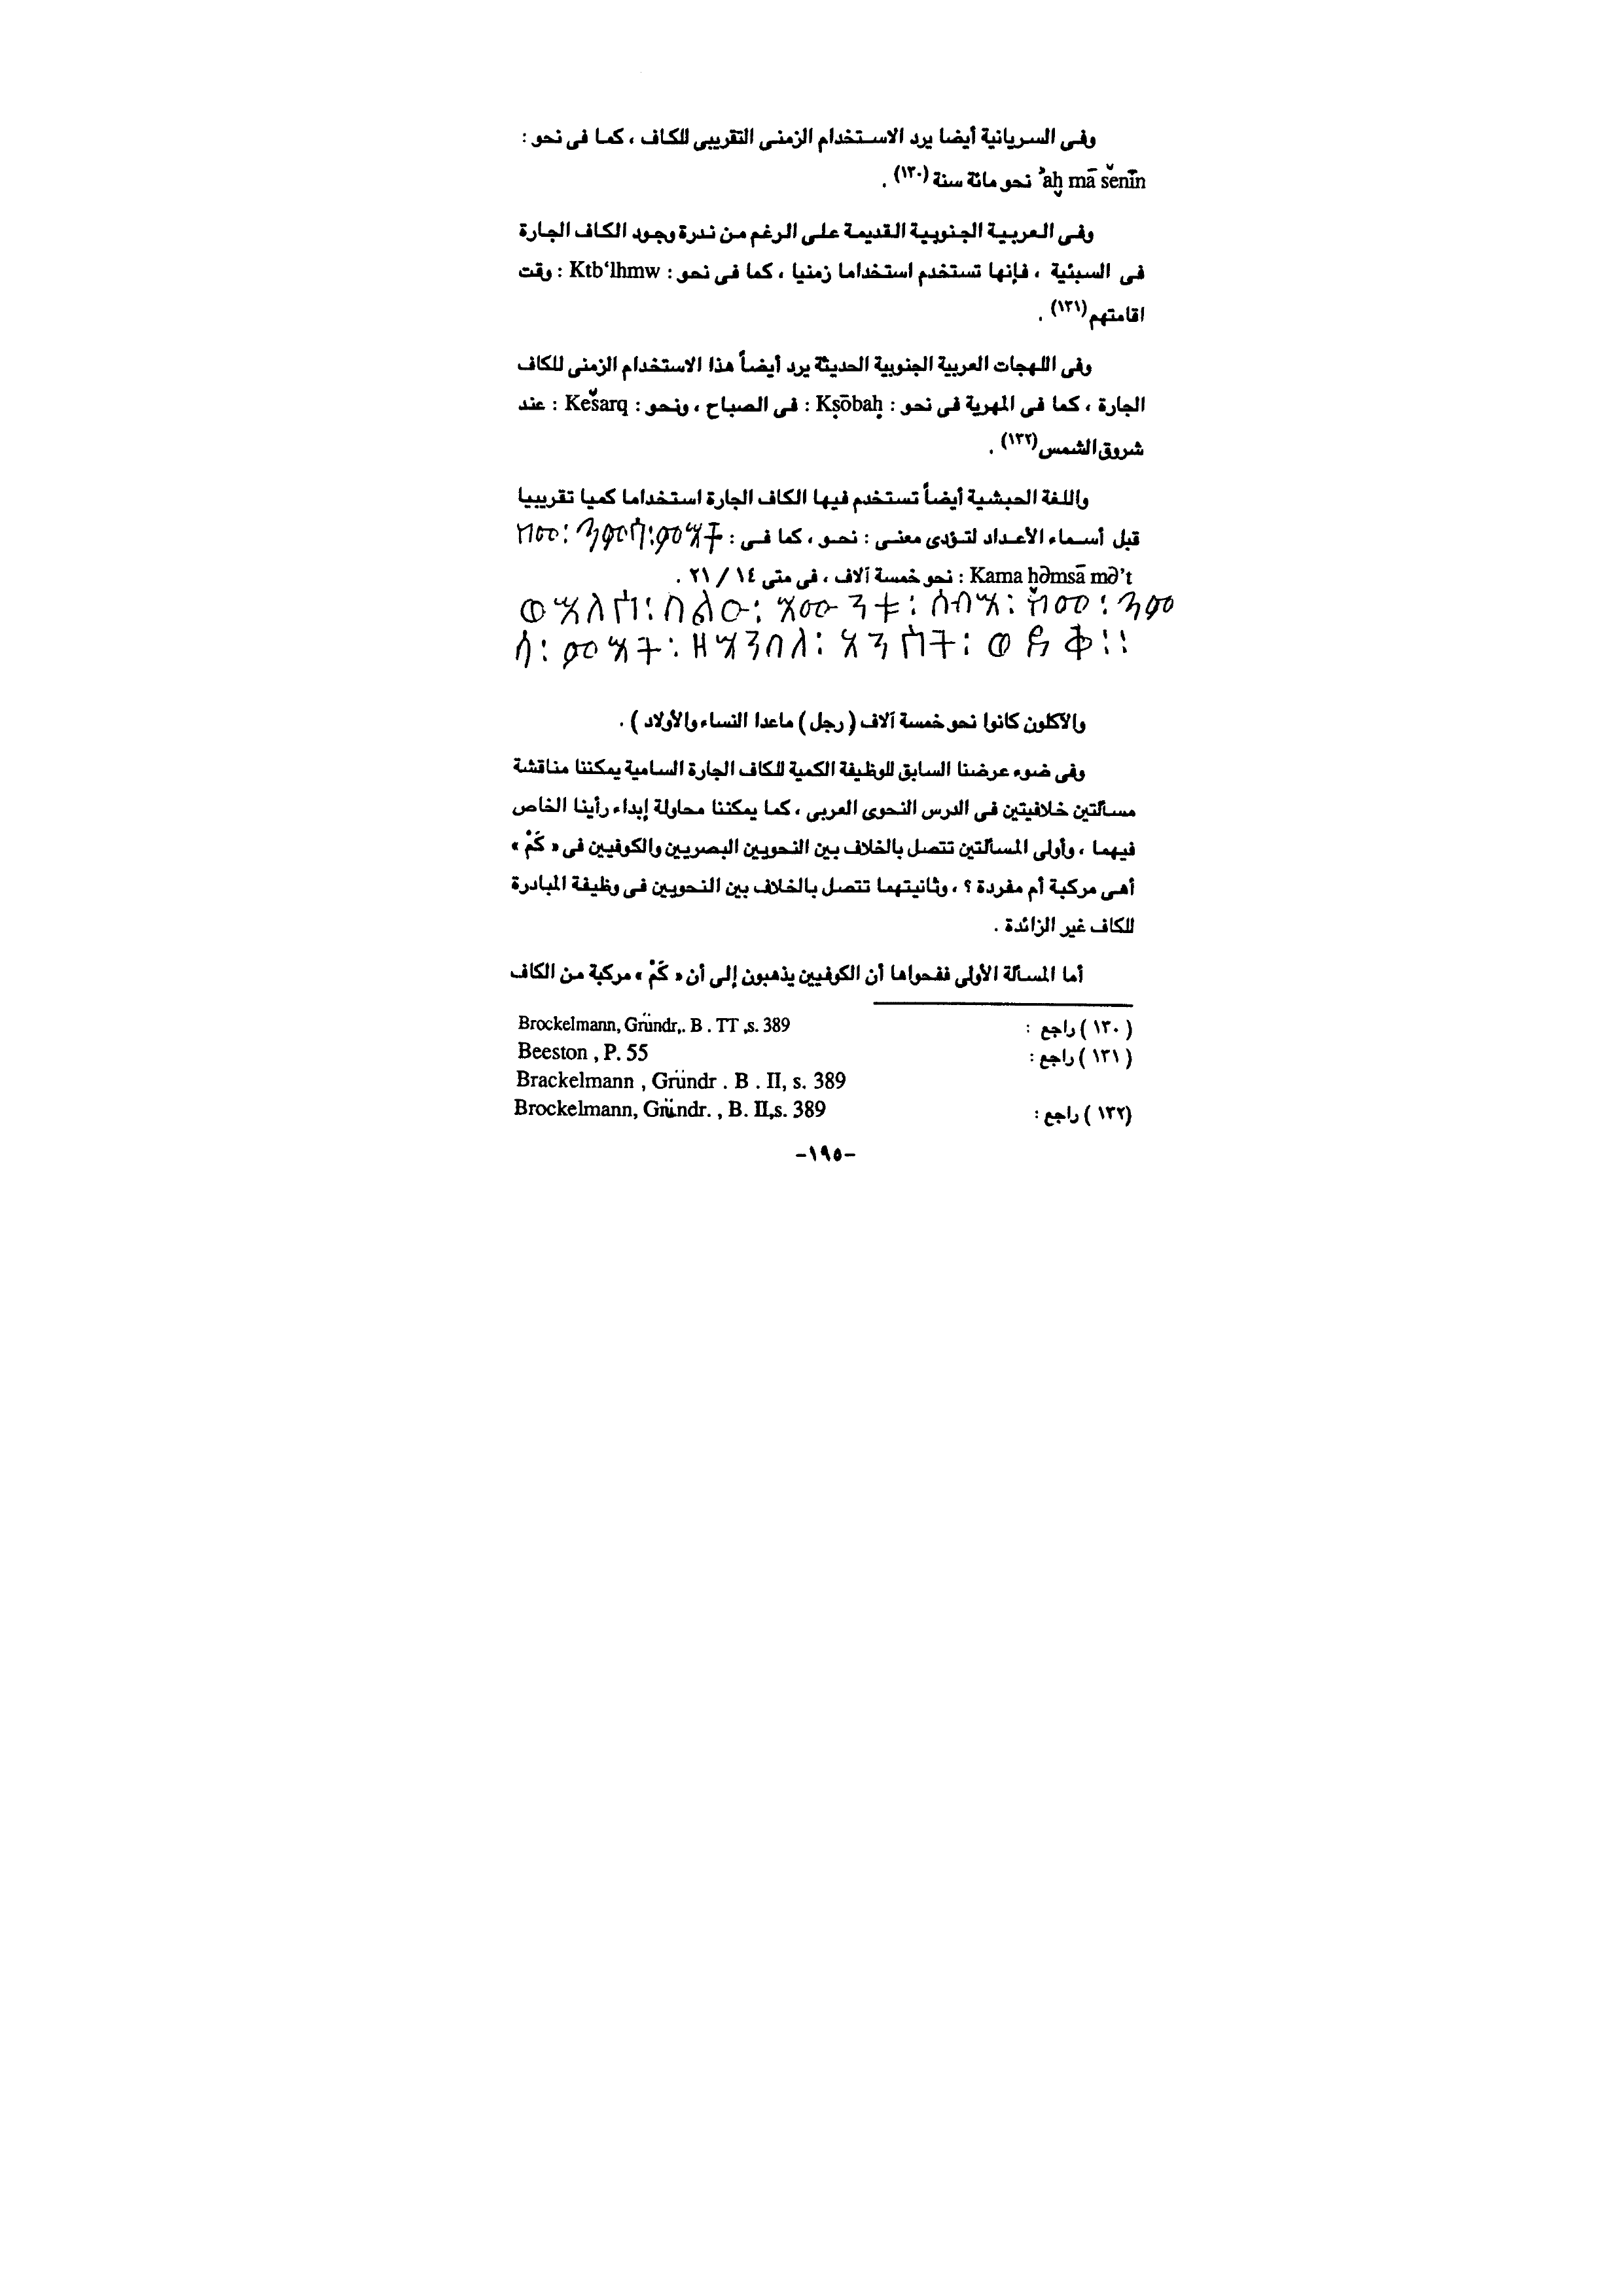 وفى السريانية أيضا يرد الاستخدام الزمنى التقريبى للكاف ، كما فى نحو :
ʾaḫ mā šenīn نحو مائة سنة (١٣٠) .
وفى العربية الجنوبية القديمة على الرغم من ندرة وجود الكاف الجارة
فى السبئية ، فإنها تستخدم استخداما زمنيا ، كما فى نحو : Ktb‘lhmw : وقت
اقامتهم (١٣١) .
وفى اللهجات العربية الجنوبية الحديثة يرد أيضاً هذا الاستخدام الزمنى للكاف
الجارة ، كما فى المهرية فى نحو : Kṣōbaḥ : فى الصباح ، ونحو : Kešarq : عند
شروق الشمس (١٣٢) .
واللغة الحبشية أيضاً تستخدم فيها الكاف الجارة استخداما كميا تقريبيا
قبل أسماء الأعداد لتؤدى معنى : نحو ، كما فى :
Kama ḫəmsā mə’t : نحو خمسة آلاف ، فى متى ١٤ / ٢١ .
والآكلون كانوا نحو خمسة آلاف ( رجل ) ماعدا النساء والأولاد ) .
وفى ضوء عرضنا السابق للوظيفة الكمية للكاف الجارة السامية يمكننا مناقشة
مسألتين خلافيتين فى الدرس النحوى العربى ، كما يمكننا محاولة إبداء رأينا الخاص
فيهما ، وأولى المسألتين تتصل بالخلاف بين النحويين البصريين والكوفيين فى « كَمْ »
أهى مركبة أم مفردة ؟ ، وثانيتهما تتصل بالخلاف بين النحويين فى وظيفة المبادرة
للكاف غير الزائدة .
أما المسألة الأولى ففحواها أن الكوفيين يذهبون إلى أن « كَمْ » مركبة من الكاف
( ١٣٠ ) راجع : Brockelmann, Gründr,. B . TT ,s. 389
( ١٣١ ) راجع : Beeston , P. 55
Brackelmann , Gründr . B . II, s. 389
(١٣٢ ) راجع : Brockelmann, Gründr. , B. II,s. 389
-١٩٥-